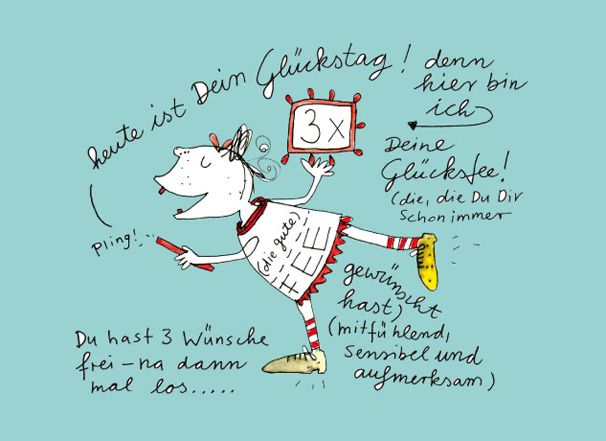 heute ist Dein Glückstag! denn
hier bin
ich
3x
Deine
Glücksfee!
(die, die Du Dir
Schon immer
gewünscht
hast)
(mitfühlend,
Sensibel und
aufmerksam)
Pling!
(die gute)
FEE
Du hast 3 Wünsche
frei – na dann
mal los.....